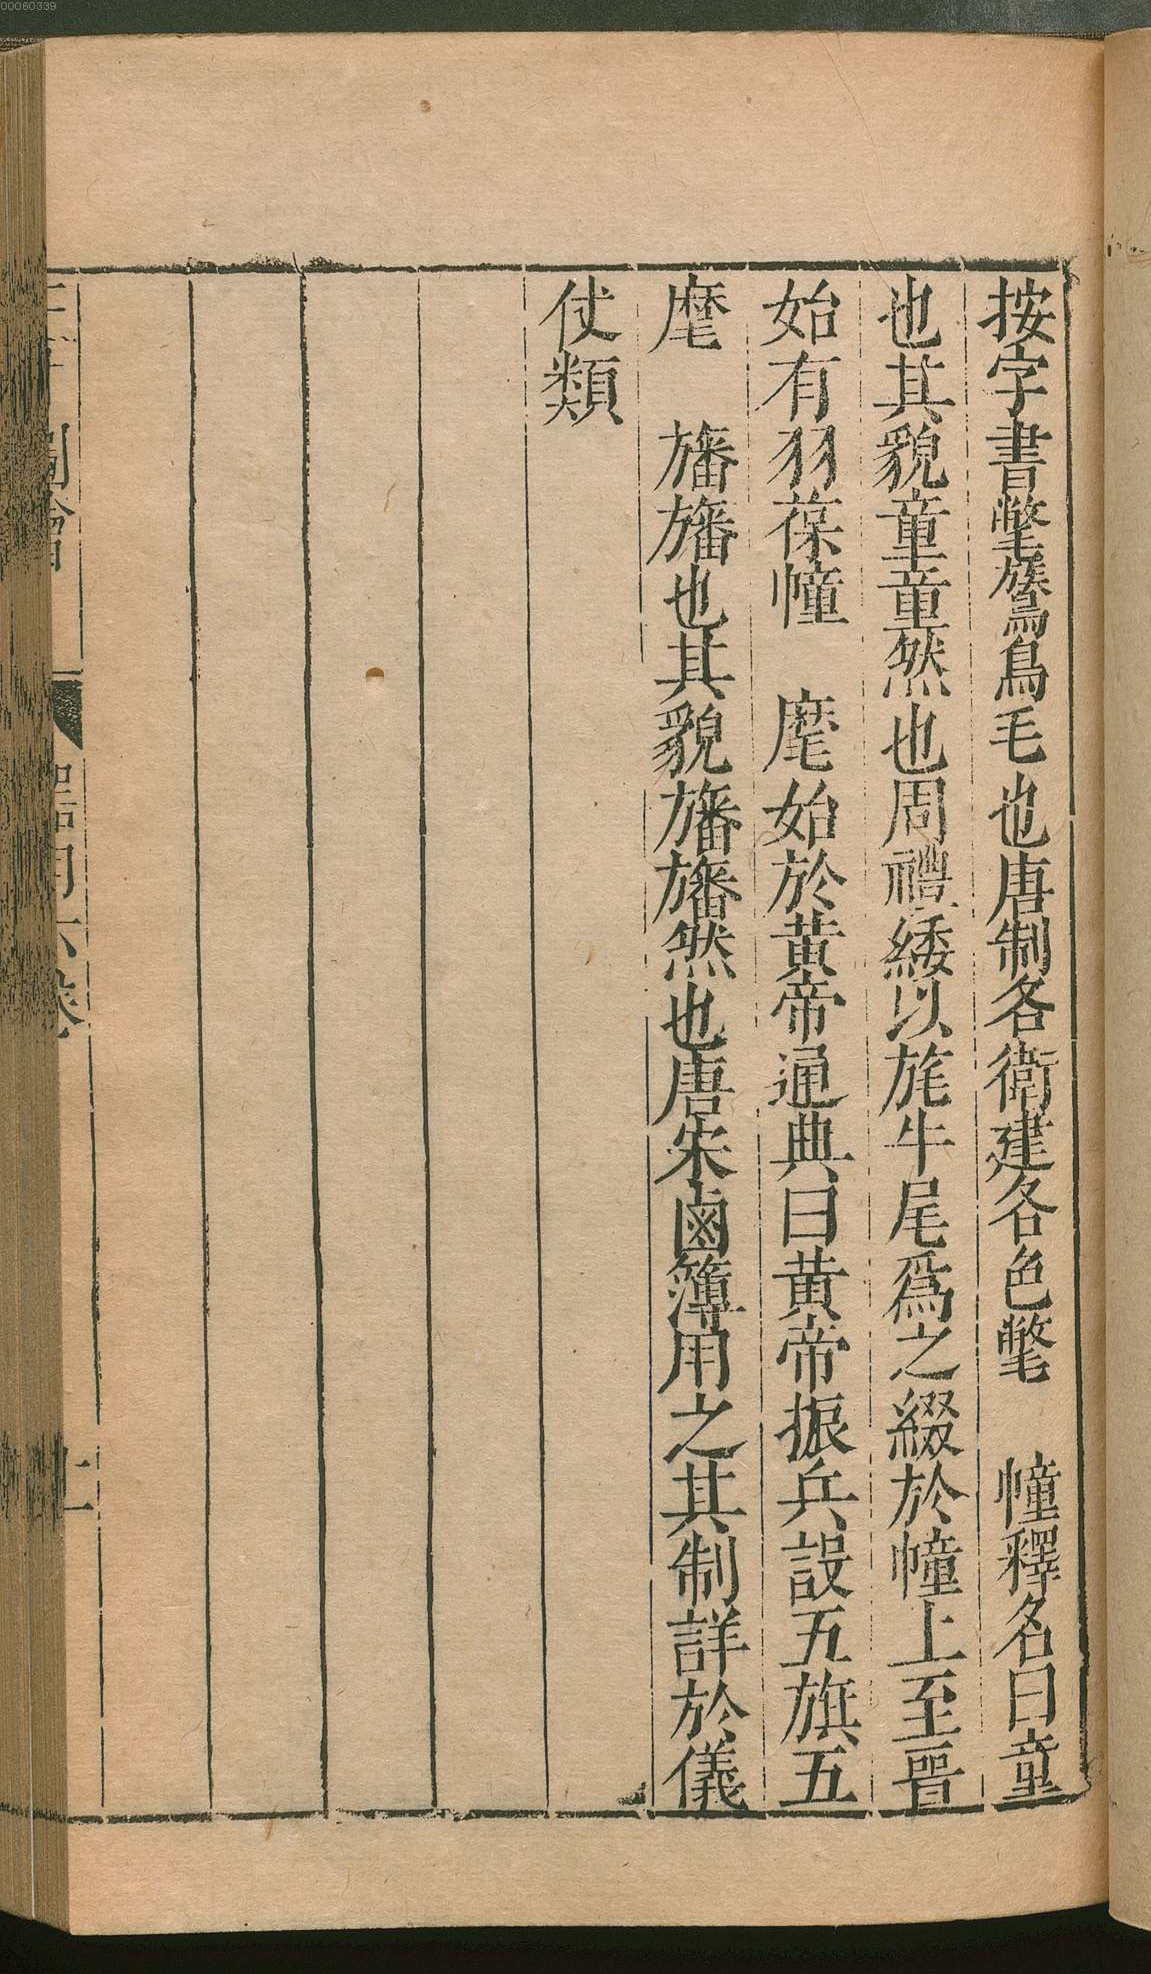 按字書氅鷟鳥毛也唐制各衛建各色氅　幢釋名曰童
也其貌童童然也周禮緌以旄牛尾爲之綴於幢上至晉
始有羽葆幢　麾始於黄帝通典曰黄帝振兵設五旗五
麾　旛旛也其貌旛旛然也唐宋鹵簿用之其制詳於儀
仗類
00060339